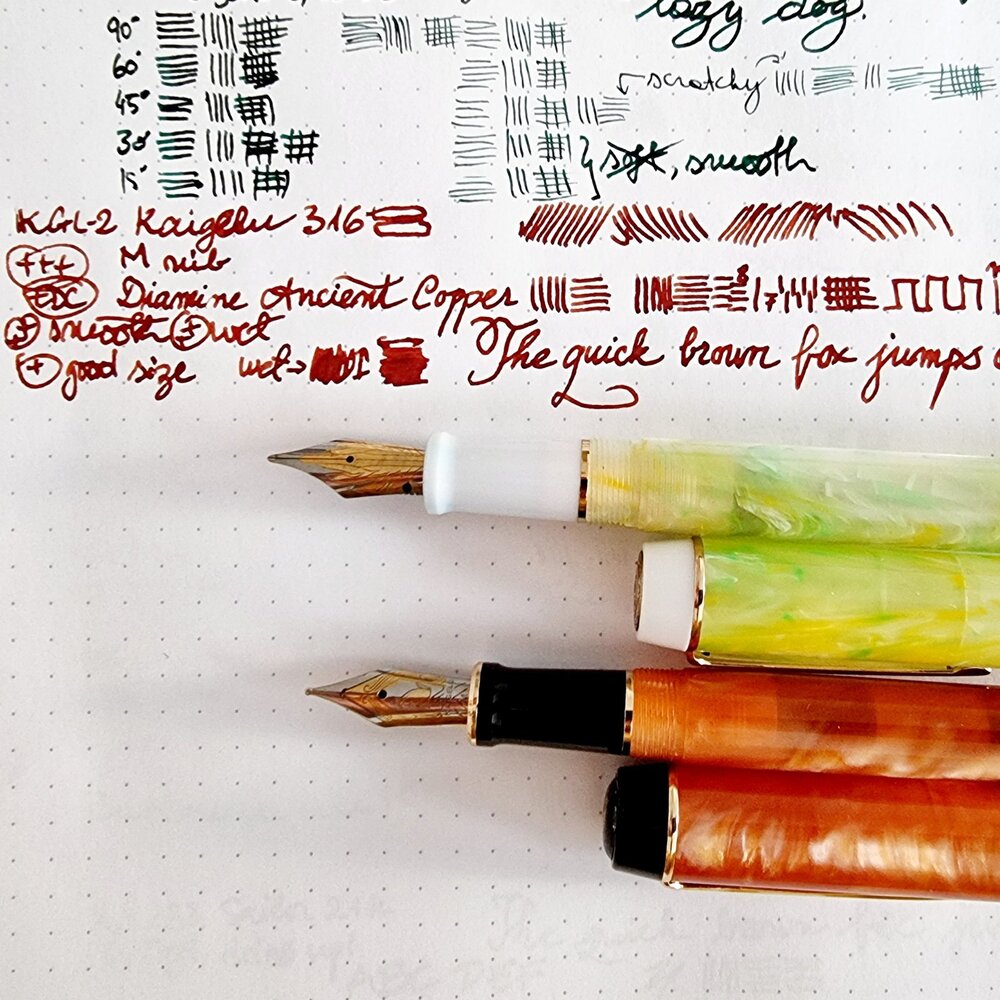 lazy dog.
90°
60°
scratchy
45°
30°
soft, smooth
15°
KGL-2 Kaigelu 316
+++ M nib
EDC Diamine Ancient Copper
+ smooth + wet
+ good size wet→
The quick brown fox jumps